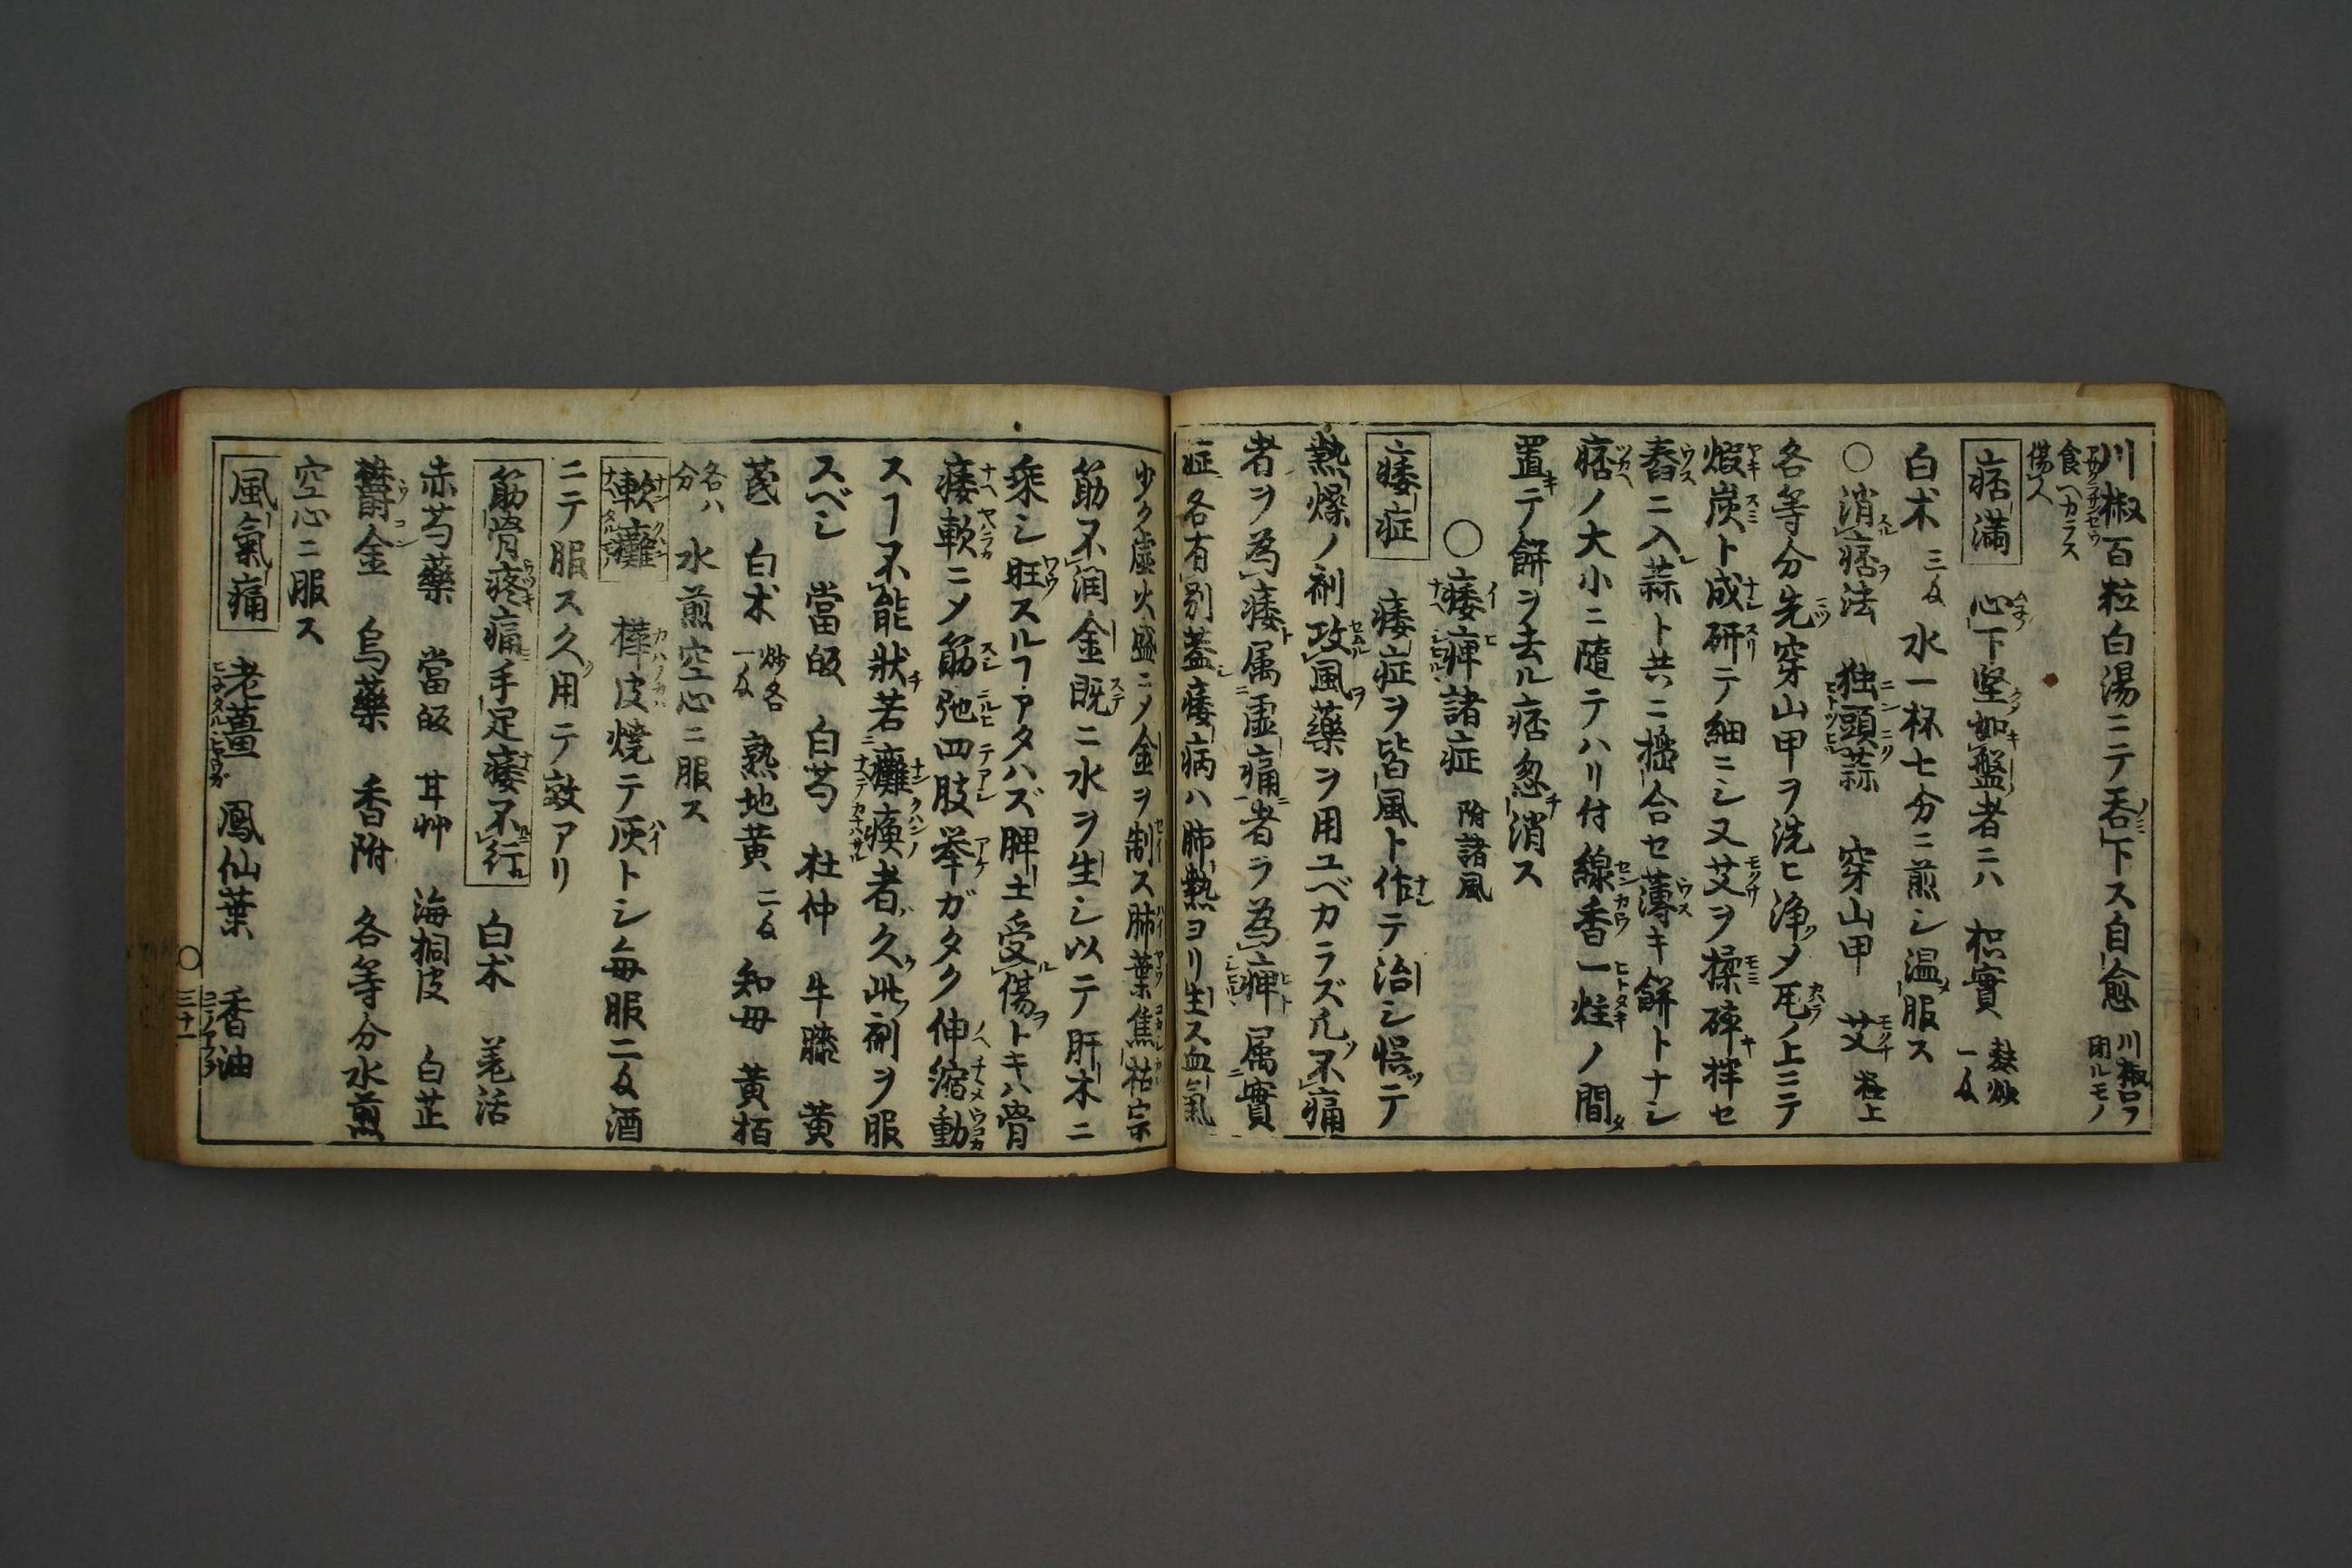 川椒百粒白湯ニテ呑下ス自愈 川椒口ヲ閉ルモノ
食ヘカラス傷人
痞満 心下堅如盤者ニハ 枳實 麩炒一匁
白朮 三匁 水一杯七分ニ煎シ温服ス
○消痞法 独頭蒜 穿山甲 艾 極上
各等分先穿山甲ヲ洗ヒ浄メ瓦ノ上ニテ
煅炭ト成研テ細ニシ又艾ヲ揉碎拌セ
舂ニ入蒜ト共ニ搗合セ薄キ餅トナシ
痞ノ大小ニ隨テハリ付線香一炷ノ間
置テ餅ヲ去ル痞忽消ス
○痿痺諸症 附諸風
痿症 痿症ヲ皆風ト作テ治シ悞テ
熱燥ノ剤攻風藥ヲ用ユベカラズ凡不痛
者ヲ為痿属虚痛者ヲ為痺属實
症各有別蓋痿病ハ肺熱ヨリ生ス血氣
少ク虚火盛ニメ金ヲ制ス肺葉焦枯宗
筋不潤金既ニ水ヲ生シ以テ肝木ニ
乘シ旺スルヿアタハズ脾土受傷トキハ骨
痿軟ニメ筋弛四肢挙ガタク伸縮動
スヿ不能狀若癱瘓者久此剤ヲ服
スベシ 當皈 白芍 杜仲 牛膝 黄
芪 白朮 炒各一匁 熟地黄 二匁 知母 黄栢
各八分 水煎空心ニ服ス
軟癱 樺皮焼テ灰トシ毎服二匁酒
ニテ服ス久用テ效アリ
筋骨疼痛手足痿不行 白朮 羌活
赤芍藥 當皈 甘艸 海桐皮 白芷
欝金 烏藥 香附 各等分水煎
空心ニ服ス
風氣痛 老薑 鳳仙葉 香油
○三十一